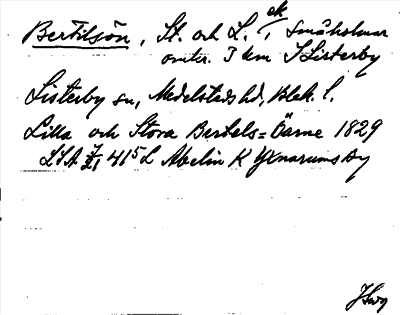 Bertilsön, St. och L., ek Småholmar
omkr. 3 km S Listerby
Listerby sn, Medelstads hd, Blek. l.
Lilla och Stora Bertels=Öarne 1829
LSA 41⁵L Abelin K Gynarums by